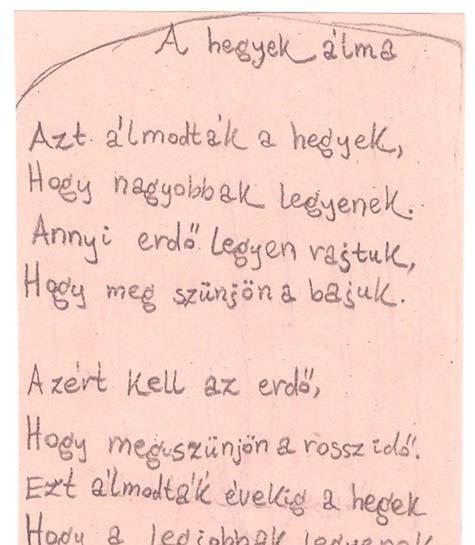 A hegyek álma
Azt álmodták a hegyek,
Hogy nagyobbak legyenek.
Annyi erdő legyen rajtuk,
Hogy meg szünjön a bajuk.
Azért kell az erdő,
Hogy meguszünjön a rossz idő.
Ezt álmodták évekig a hegek
Hogy a legjobbak legyenek